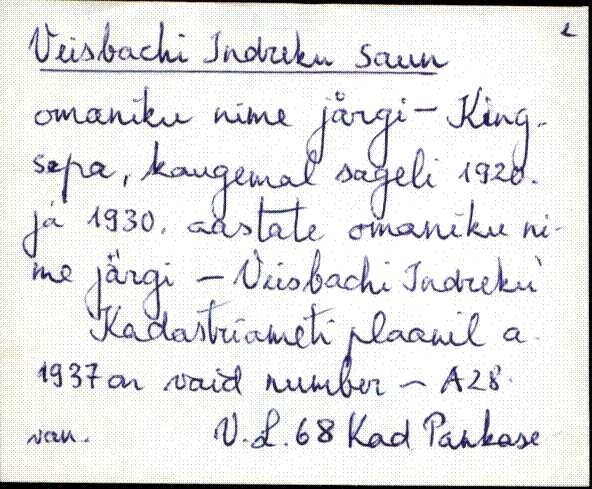 Veisbachi Indreku saun
omaniku nime järgi – King-
sepa, kaugemal sageli 1920.
ja 1930. aastate omaniku ni-
me järgi – Veisbachi Indreku
Kadastriameti plaanil a.
1937 on vaid number – A28.
van. V. L. 68 Kad Pankase